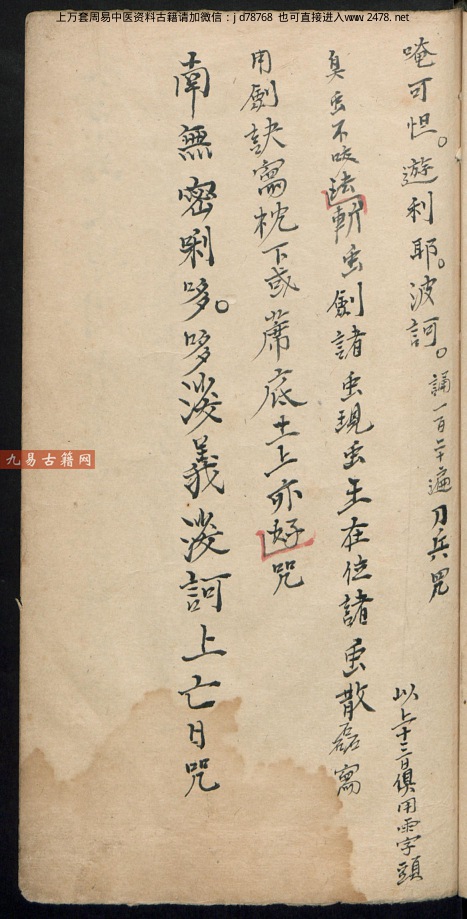 上万套周易中医资料古籍请加微信：jd78768 也可直接进入www.2478.net
唵可怛。遊利耶。波訶。誦一百二十遍刀兵咒
以上十三日俱用雨字頭
臭虫不咬法斬虫劍諸虫現虫王在位諸虫散磊寫
用劍訣寫枕下或蓆底土上亦好咒
南無密唎哆。哆淡義淡訶上亡日咒
九易古籍网